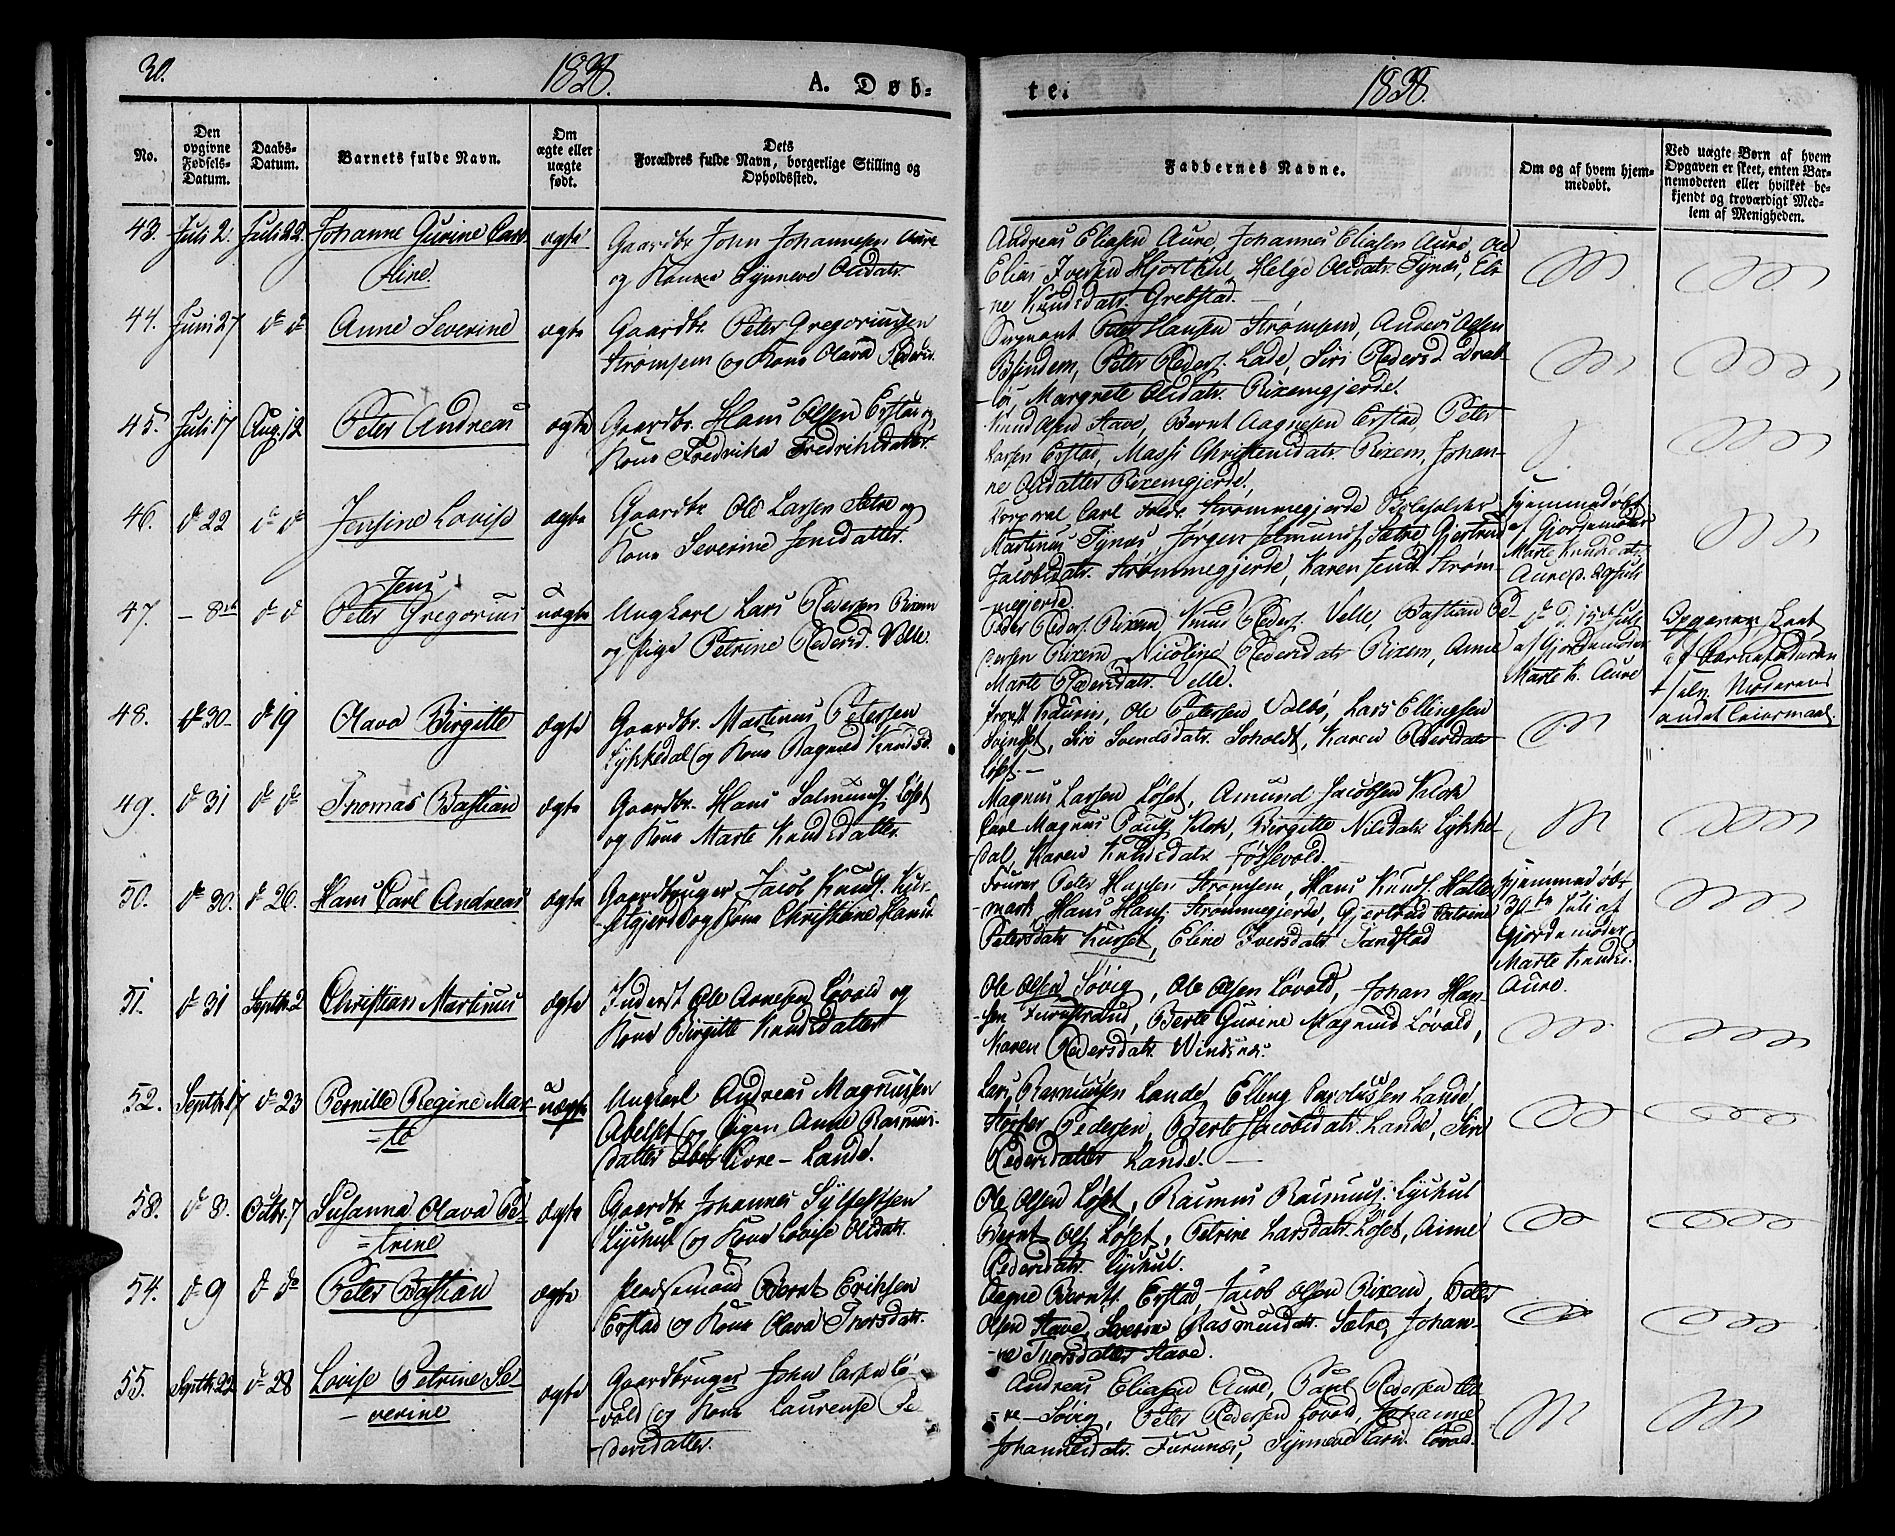 30.
1838.
A. Døb-
te.
1838.
No.
Den opgivne Fødsels-Datum.
Daabs-Datum.
Barnets fulde Navn.
Om ægte eller uægte født.
Dets Forældres fulde Navn, borgerlige Stilling og Opholdssted.
Faddernes Navne.
Om og af hvem hjem-
medøbt.
Ved uægte Børn af hvem
Opgaven er skeet, enten Bar-
nemoderen eller hvilket be-
kjendt og troværdigt Med-
lem af Menigheden.
43. Juli 2. Juli 22. Johanne Gurine Caro-
line
ægte
Gaardbr. John Johannesen Aure
og Konen Synneve Olidatr.
Andreas Eliasen Aure, Johannes Eliasen Aure, Ole
Elias Iversen Hjorthul, Helge Olidatr. Tynes, Eli-
ne Knudsdatr. Grebstad.
44. Juni 27 do do Anne Severine ægte
Gaardbr. Peter Gregoriussen
Strømsem og Kone Olava Pedersd.
Sergeant Peter Hansen Strømsem, Anders Olsen
Blindem, Peter Peders. Lade, Siri Pedersd. Drab-
løs, Margrete Olidatr. Rixemgjerde.
45. Juli 17 Aug. 12 Peter Andreas ægte
Gaardbr. Hans Olsen Erstad og
Kone Fredrika Fredriksdatter.
Knud Olsen Stave, Bernt Aagnesen Erstad, Peter
Larsen Erstad, Massi Christensdatr. Rixem, Johan-
ne Olidatter Rixemgjerde.
46. do 22 do do Jensine Lovise ægte
Gaardbr. Ole Larsen Sætre og
Kone Severine Jensdatter.
Korporal Carl Fredr. Strømmegjerde
Martinus Tynes, Jørgen Sætre, Gjertrud
Jacobsdatr. Strømmegjerde, Karen Jensd. Strøm-
megjerde
Hjemmedøbt
af Gjordemoder
Marte Knudsdatr.
Aure d. 29 Juli
47. - 8de do do Jens
Peter Gregorius uægte
Ungkarl Lars Pedersen Rixem
og Pige Petrine Pedersd. Velle.
Peder Peders. Rixem, Knud Peders. Velle, Bastian Pe-
dersen Rixem, Nicoline Pedersdatr. Rixem, Anne
Marte Pedersdatr. Velle.
do d. 15de Juli
af Gjordemoder
Marte K. Aure
Opgaven skeet
af Barnefaderen
selv.
andet Leiermaal.
48. do 30. do 19 Olava Birgitte ægte
Gaardbr. Martinus Petersen
Lykkedal og Kone Ragnild Knudsd.
Provst Kaurin, Ole Petersen Valbø, Lars Ellingsen
Svinset, Siri Svendsdatr. Soholdt, Karen Pedersdatr.
Løset.
49. do 31 do do Thomas Bastian ægte
Gaardbr. Hans Salmunds. Løset
og Kone Marte Knudsdatter
Magnus Larsen Løset, Amund Jacobsen Klok
Carl Magnus Pauls. Klok, Birgitte Nilsdatr. Lykke-
dal, Karen Knudsdatr. Fossevold.
50. do 30. do 26. Hans Carl Andreas ægte
Gaardbruger Jacob Knuds. Kur-
setgjerde og Kone Christiane Hansd.
Fourer Peter Hansen Strømsem, Hans Knuds. Halle-
mark, Hans Hans. Strømmegjerde, Gjertrud Petrine
Petersdatr. Kurset, Eline Iversdatr. Tandstad
Hjemmedøbt
30te Juli af
Gjordemoder
Marte Knudsd.
Aure.
51. do 31 Septbr. 2 Christian Martinus ægte
Inderst Ole Arnesen Løvold og
Kone Birgitte Knudsdatter
Ole Olsen Søvig, Ole Olsen Løvold, Johan Han-
sen Furstrand, Berte Gurine Magnusd. Løvold,
Karen Pedersdatr. Windsnes.
52. Septbr. 17 do 23 Pernille Regine Mar-
te
uægte
Ungkarl Andreas Magnussen
Abelset og Pigen Anne Rasmus-
datter Lande.
Lars Rasmussen Lande, Elling Carolussen Lande,
Kristofer Pedersen, Berte Jacobsdatr. Lande, Siri
Pedersdatter Lande.
53. do 8. Octbr. 7 Susanna Olava Pe-
trine
ægte
Gaardbr. Johannes Sylfestsen
Lyshul og Kone Lovise Olidatr.
Ole Olsen Løset, Rasmus Rasmuss. Lyshul
Bernt Ols. Løset, Petrine Larsdatr. Løset, Anne
Pedersdatr. Lyshul.
54. do 9 do do Peter Bastian ægte
Pladsemand Bernt Eriksen
Erstad og Kone Olava Thorsdatr.
Aagne Bernts. Erstad, Jacob Olsen Rixem, Peter
Olsen Stave, Severine Rasmusdatr. Sætre, Johan-
ne Thorsdatter Stave.
55. Septbr. 22 do 28 Lovise Petrine Se-
verine
ægte
Gaardbruger John Larsen Lø-
vold og Kone Laurense Pe-
dersdatter.
Andreas Eliasen Aure, Paul Pedersen
Søvig, Peter Pedersen Løvold, Johanne
Johannesdatr. Furunes, Synneve Larsd. Løvold.